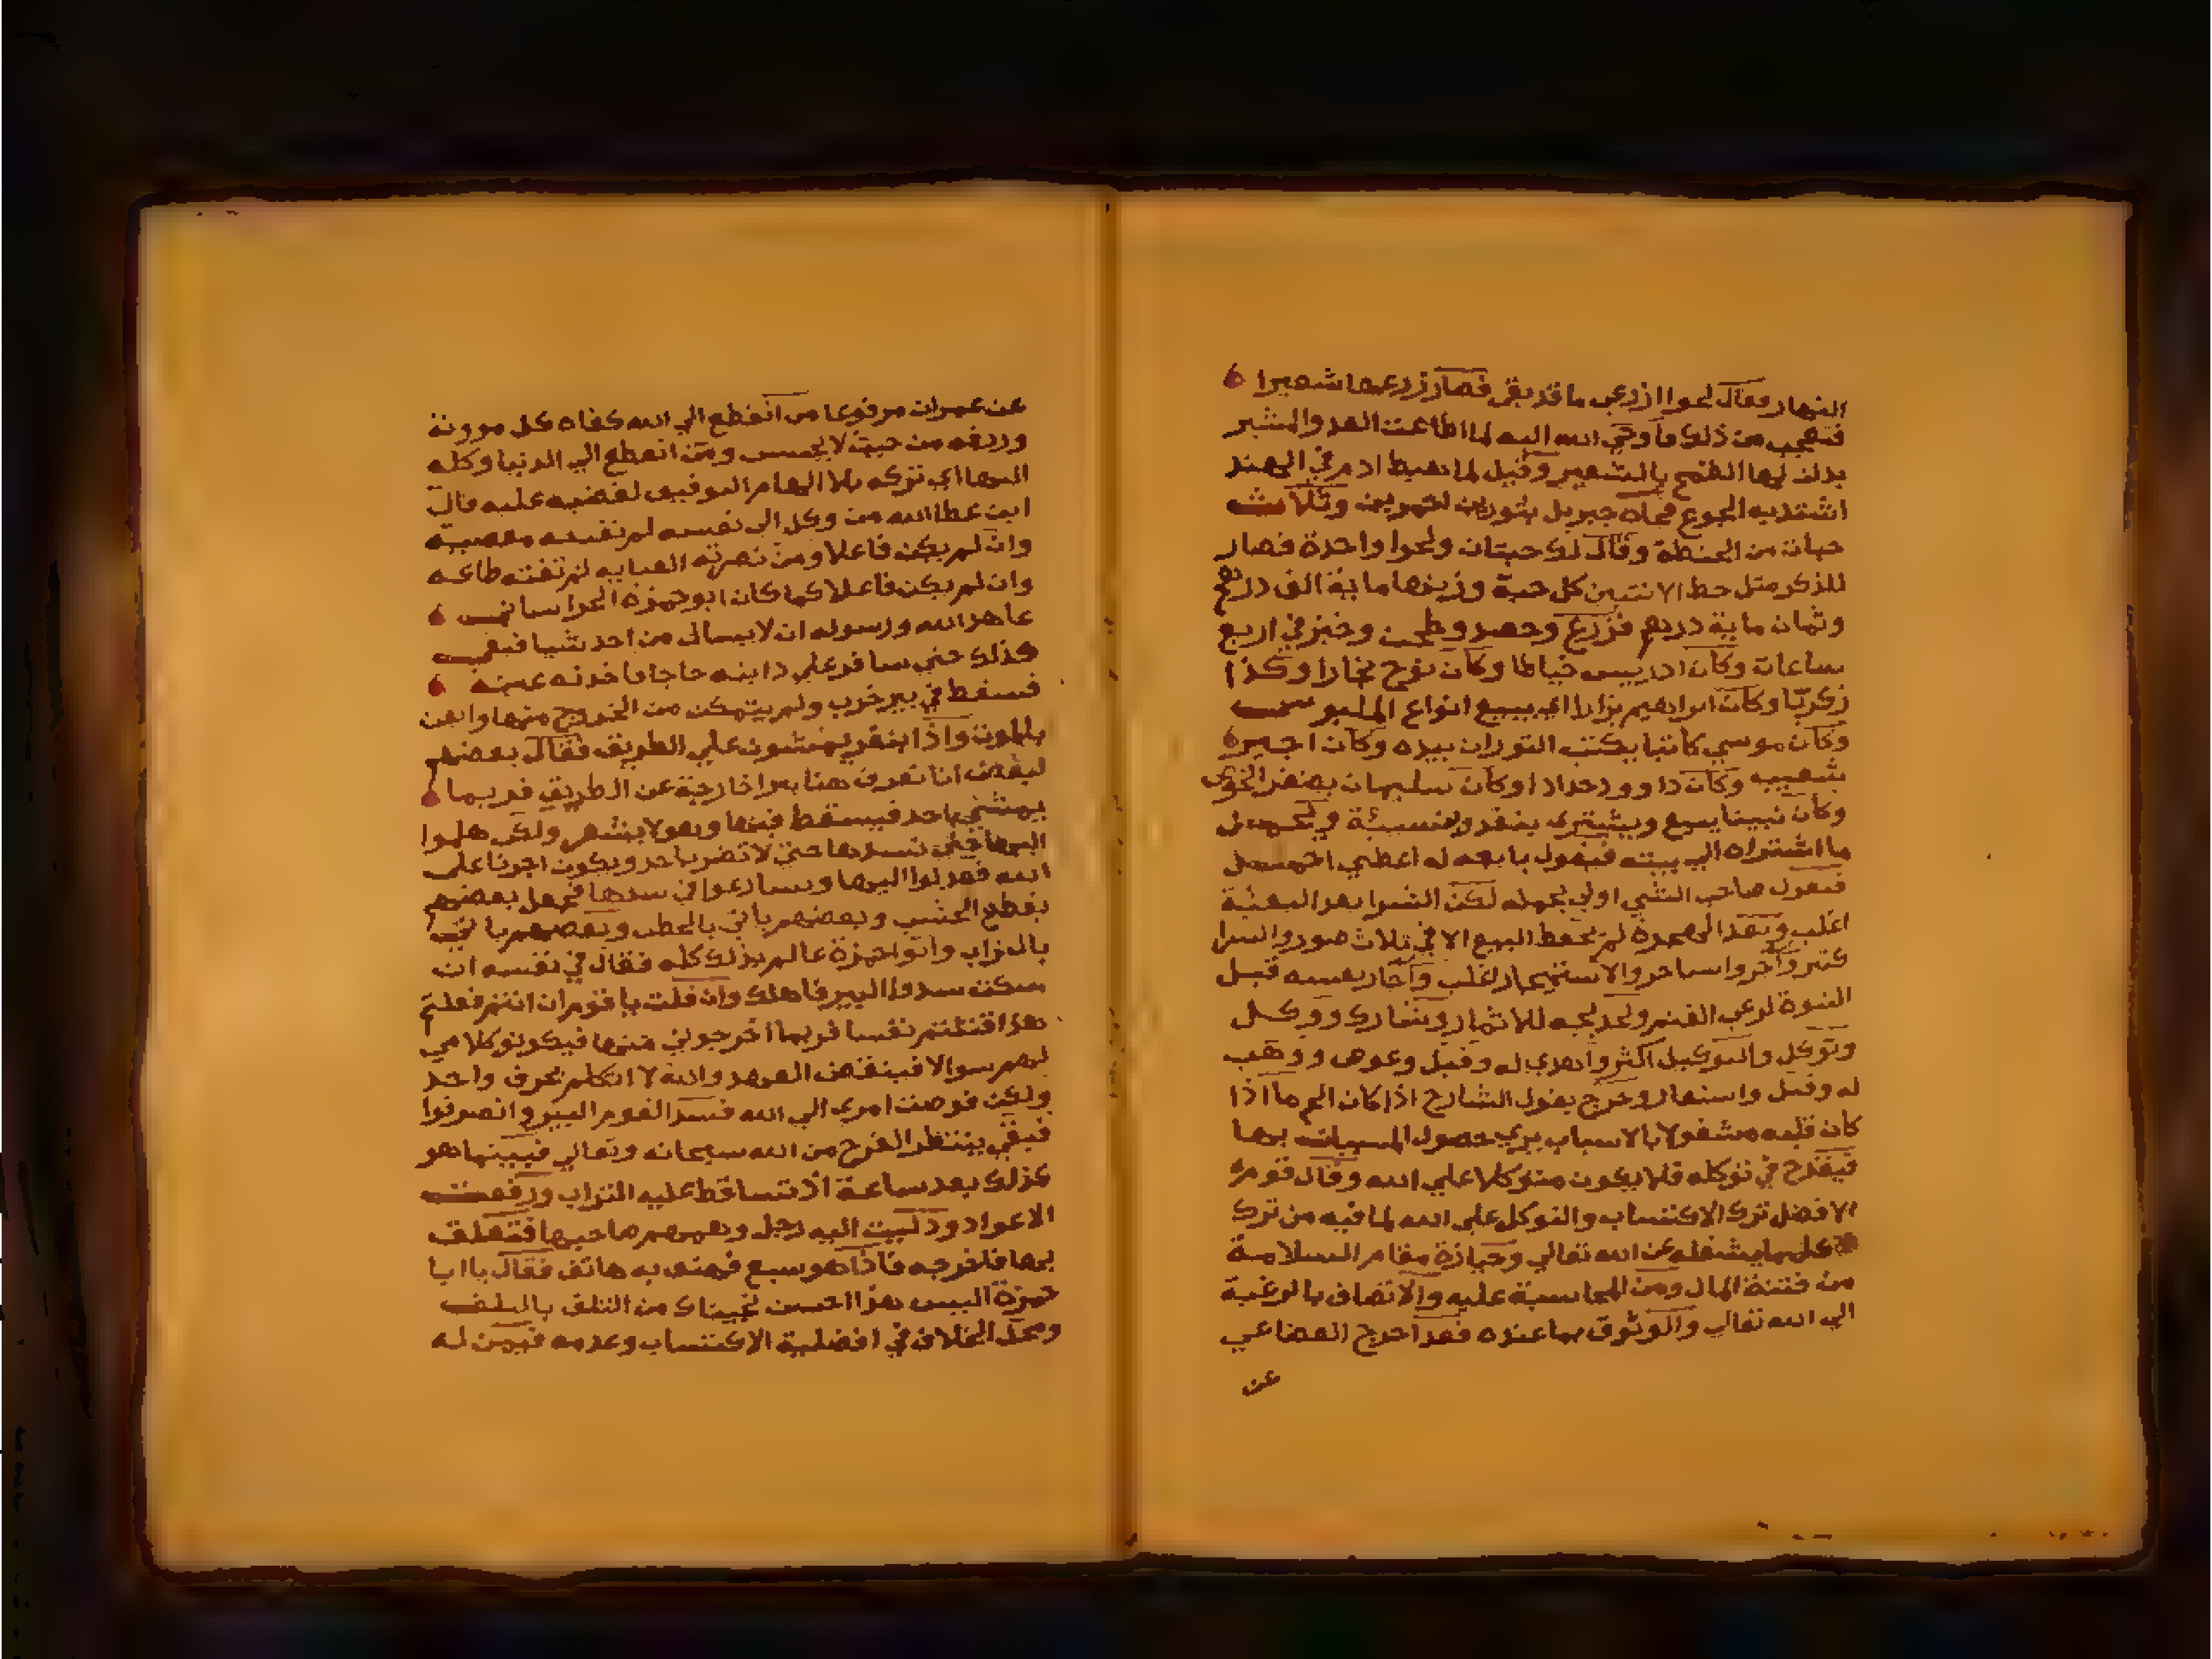 النهار فقال لحوا ازرعي ما قد بقي فصار زرعها شعيرا
فتعجب من ذلك فاوحي الله اليه لما اطاعت العدو المشير
بدلت لها القمح بالشعير وقيل لما هبط ادم في الهند
اشتد به الجوع فجاه جبريل بثورين احمرين وثلاث
حبات من الحنطة وقال لك حبتان ولحوا واحدة فصار
للذكر مثل حظ الانثيين كل حبة وزنها ماية الف درهم
وثمان ماية درهم فزرع وحصد وطحن وخبز في اربع
ساعات وكان ادريس خياطا وكان نوح نجارا وكذا
زكريا وكان ابراهيم بزازا اي يبيع انواع الملبوس
وكان موسي كاتبا يكتب التوراة بيده وكان اجير
شعيب وكان داوود حدادا وكان سليمان يضفر الخوص
وكان نبينا يبيع ويشتري بنقد ونسيئة ويحمل
ما اشتراه الي بيته فيقول بايعه له اعطني احمل
فيقول صاحب الشي اولي بحمله لكن الشرا بعد البعثة
اغلب وبعد الهجرة لم يحفظ البيع الا في ثلاث صور والشرا
كثير وآجر واستاجر والاستيجار اغلب وآجار نفسه قبل
النبوة لرعي الغنم ولخديجه للاتجار وشارك ووكل
وتوكل والتوكيل اكثر واهدي له وقبل وعوض ووهب
له وقبل واستعار وخرج بقول الشارح اذا كان الخ ما اذا
كان قلبه مشغولا بالاسباب يري حصول المسببات بها
فيقدح في توكله فلا يكون متوكلا علي الله وقال قوم
الافضل ترك الاكتساب والتوكل علي الله لما فيه من ترك
كلما يشغله عن الله تعالي وحيازة مقام السلامة
من فتنة المال ومن المحاسبة عليه والاتصاف بالرغبة
الي الله تعالي والوثوق بما عنده فقد اخرج القضاعي
عن
عن عمران مرفوعا من انقطع الي الله كفاه كل موونة
ورزقه من حيث لا يحتسب ومن انقطع الي الدنيا وكله
اليها اي تركه بلا الهام التوفيق لغضبه عليه قال
ابن عطا الله من وكل الي نفسه لم تفته معصية
وان لم يكن فاعلا ومن نصرته العنايه لم تفته طاعه
وان لم يكن فاعلا كما كان ابو حمزه الخراساني
عاهد الله ورسوله ان لا يسال من احد شيا فبقي
كذلك حتي سافر علي دابته حاجا فاخذته عينه
فسقط في بير خرب ولم يتمكن من الخروج منها وايقن
بالموت واذا بنفر يمشون علي الطريق فقال بعضهم
لبعض انا نعرف هنا بيرا خارجة عن الطريق فربما
يمشي احد فيسقط فيها وهو لا يشعر ولكن هلموا
اليها حتي نسدها حتي لا تضر باحد ويكون اجرنا علي
الله فعدلوا اليها وسارعوا في سدها فجعل بعضهم
يقطع الخشب وبعضهم ياتي بالحطب وبعضهم ياتي
بالتراب وابو حمزة عالم بذلك كله فقال في نفسه ان
سكت سدوا البير فاهلك وان قلت يا قوم ان انتم فعلتم
هذا قتلتم نفسا فربما اخرجوني منها فيكون كلامي
لهم سوالا فينقض العهد والله لا اتكلم بحرف واحد
ولكن فوضت امري الي الله فسد القوم البير وانصرفوا
فبقي ينتظر الفرج من الله سبحانه وتعالي فبينما هو
كذلك بعد ساعة اذ تساقط عليه التراب ورفعت
الاعواد ودليت اليه رجل وهمهم صاحبها فتعلق
بها فاخرجه فاذا هو سبع فهتف به هاتف فقال يا ابا
حمزة اليس هذا احسن نجيناك من التلف بالتلف
ومحل الخلاف في افضلية الاكتساب وعدمه فيمن له